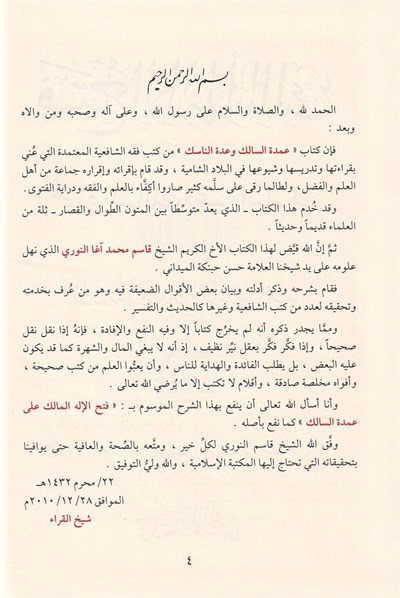 بسم الله الرحمن الرحيم
الحمد لله ، والصلاة والسلام على رسول الله ، وعلى آله وصحبه ومن والاه
وبعد :
فإن كتاب « عمدة السالك وعدة الناسك » من كتب فقه الشافعية المعتمدة التي عُني
بقراءتها وتدريسها وشيوعها في البلاد الشامية ، وقد قام بإقرائه وإقراره جماعة من أهل
العلم والفضل، ولطالما رقى على سلَّمه كثير صاروا أكِفَّاء بالعلم والفقه ودراية الفتوى.
وقد خُدم هذا الكتاب ــ الذي يعدّ متوسِّطاً بين المتون الطِّوال والقصار ــ ثلة من
العلماء قديماً وحديثاً .
ثمَّ إنَّ الله قيَّض لهذا الكتاب الأخ الكريم الشيخ قاسم محمد آغا النوري الذي نهل
علومه على يد شيخنا العلامة حسن حبنكة الميداني .
فقام بشرحه وذكر أدلته وبيان بعض الأقوال الضعيفة فيه وهو من عُرف بخدمته
وتحقيقه لعدد من كتب الشافعية وغيرها كالحديث والتفسير .
وممَّا يجدر ذكره أنه لم يخرِّج كتاباً إلا وفيه النفع والإفادة ، فإنهُ إذا نقل نقل
صحيحاً ، وإذا فكَّر فكَّر بعقل نيِّر نظيف ، إذ أنه لا يبغي المال والشهرة كما قد يكون
عليه البعض ، بل يطلب الفائدة والهداية للناس ، وأن يعبُّوا العلم من كتب صحيحة ،
وأفواه مخلصة صادقة ، وأقلام لا تكتب إلا ما يُرضي الله تعالى .
وأنا أسأل الله تعالى أن ينفع بهذا الشرح الموسوم بـ : « فتح الإله المالك على
عمدة السالك » كما نفع بأصله .
وفَّق الله الشيخ قاسم النوري لكلِّ خير ، ومتَّعه بالصِّحة والعافية حتى يوافينا
بتحقيقاته التي تحتاج إليها المكتبة الإسلامية ، والله وليُّ التوفيق .
٢٢/ محرم ١٤٣٢هـ
الموافق ٢٨/ ١٢/ ٢٠١٠م
شيخ القراء
٤